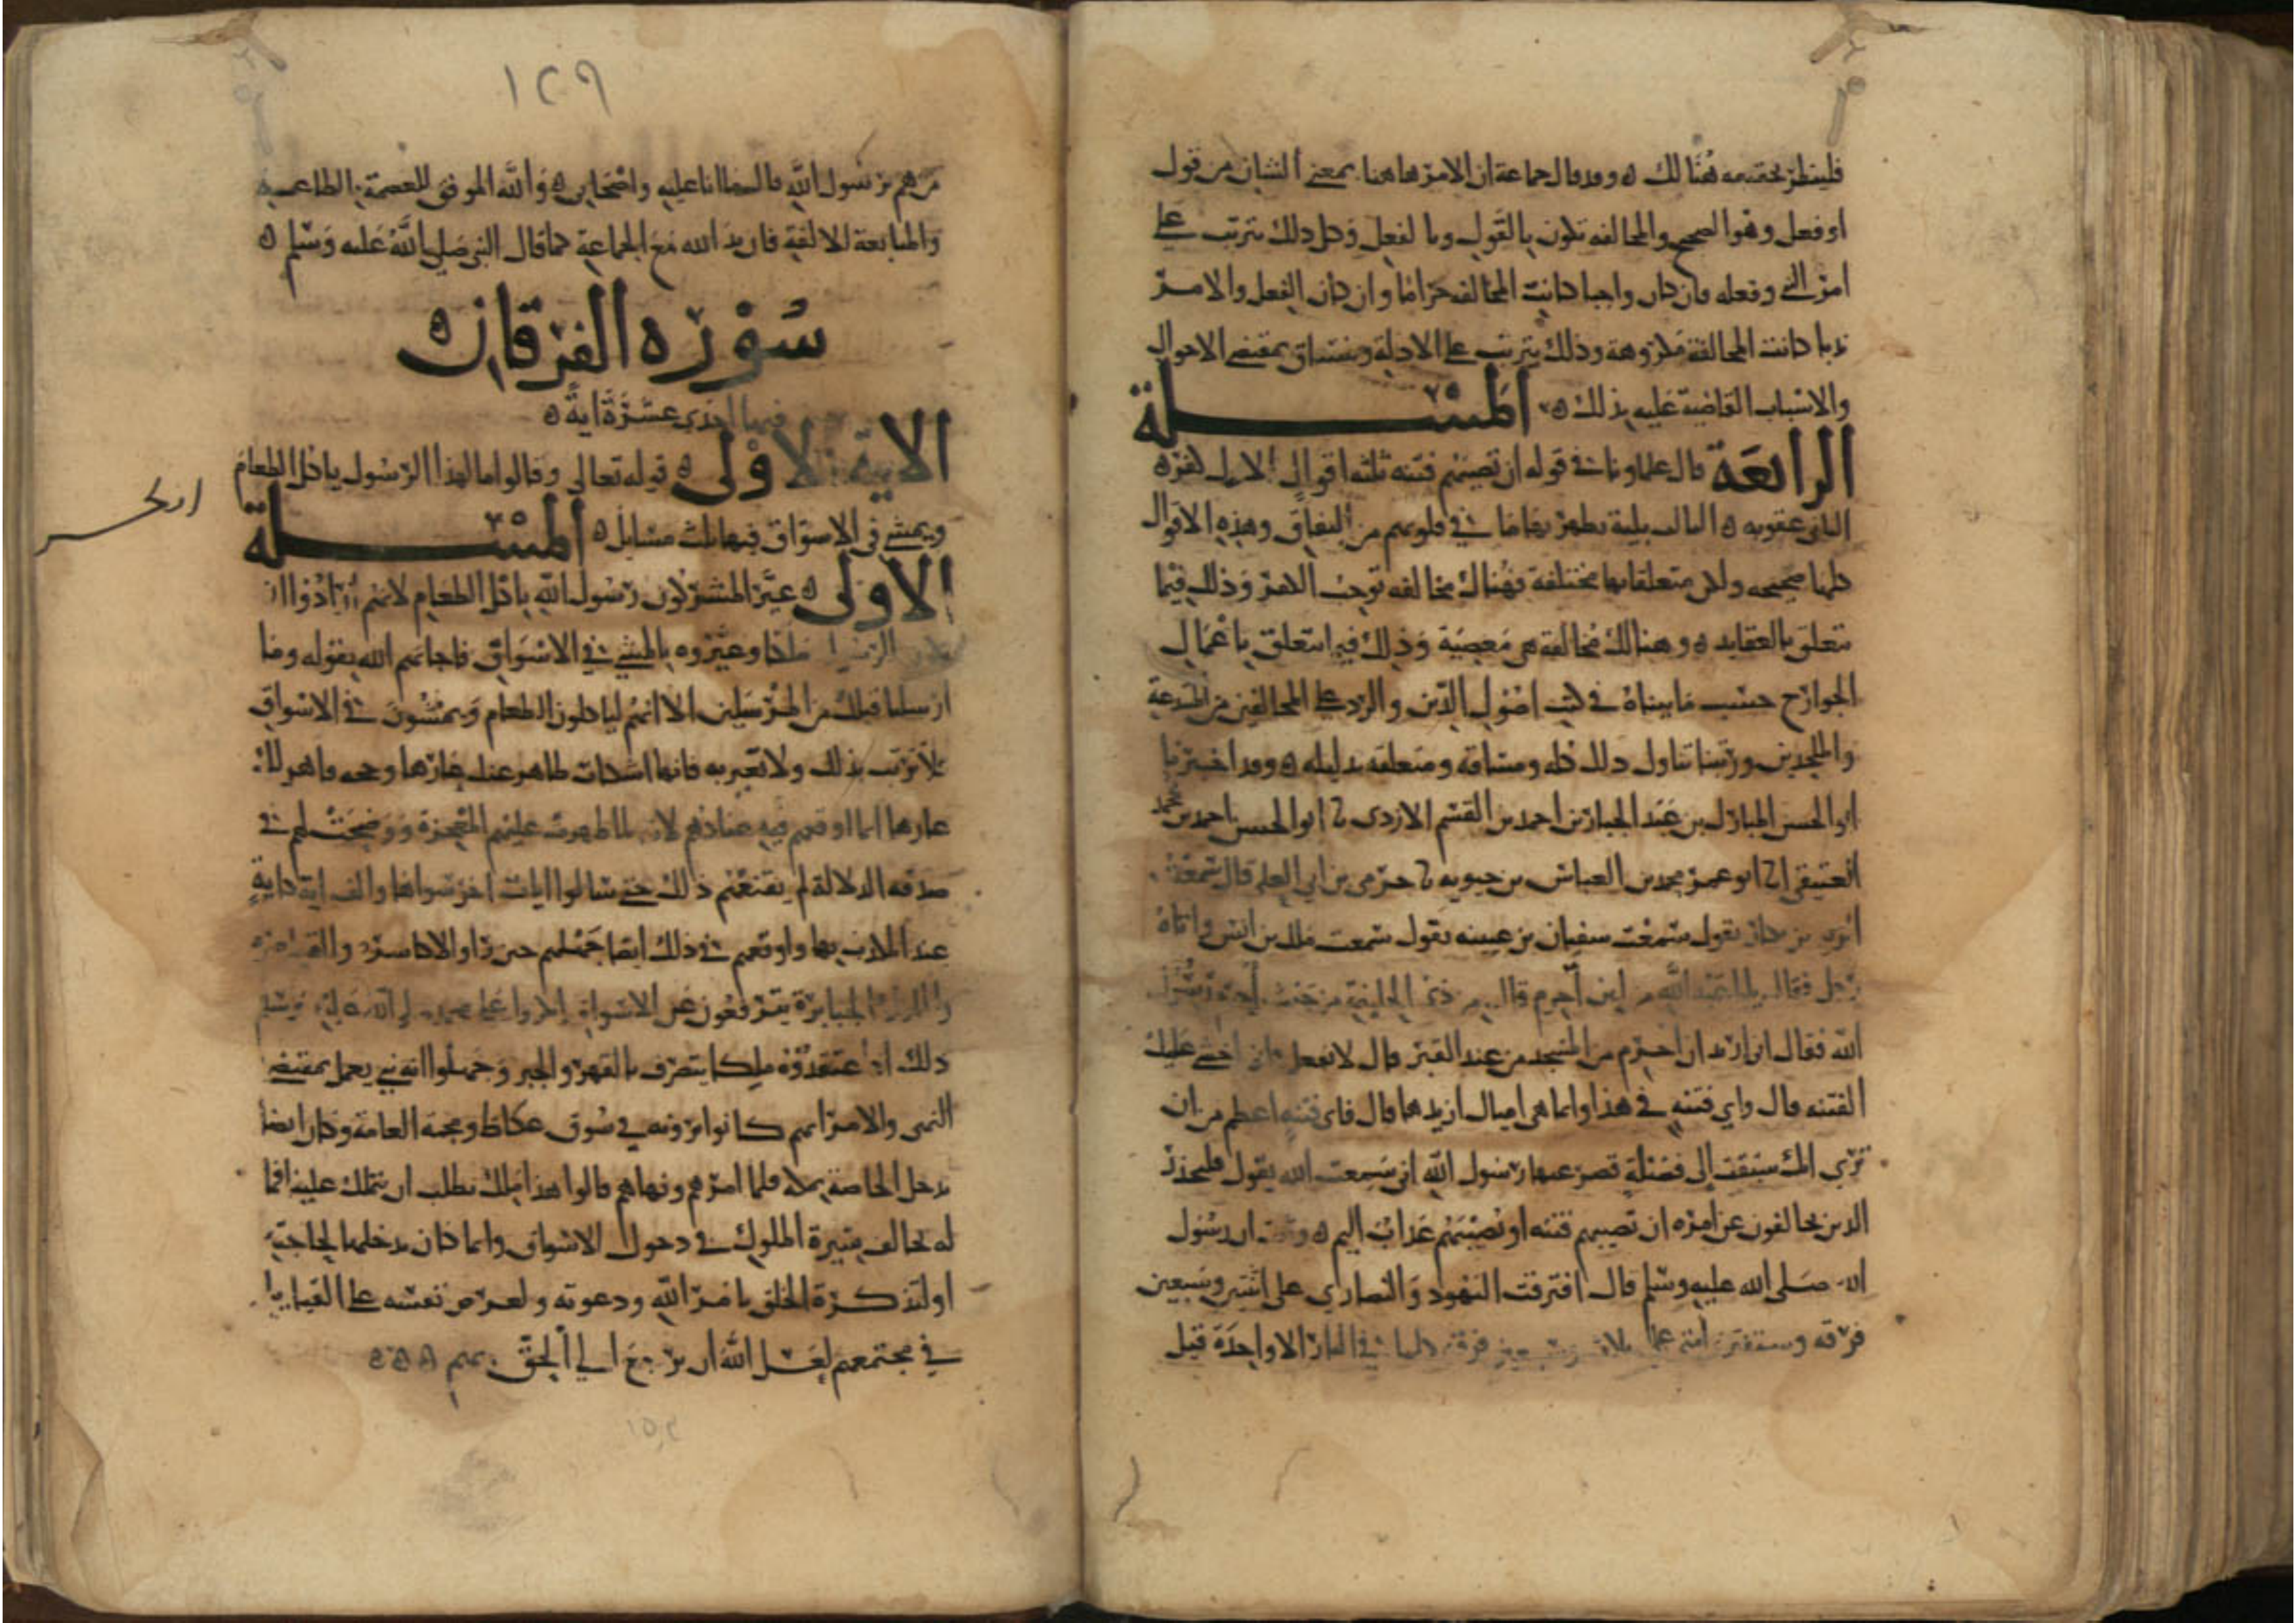 فلينظر تحقيقه هنالك ه وقد قال جماعة ان الامر هاهنا بمعنى الشان من قول
او فعل وهو الصحيح والمخالفه تكون بالقول وبالفعل وكل ذلك يترتب على
امر النبي وفعله فان كان واجبا كانت المخالفه حراما وان كان الفعل والامر
ندبا كانت المخالفة مكروهة وذلك يترتب على الادلة وينساق بمقتضى الاحوال
والاسباب القاضية عليه بذلك ه المسئلة
الرابعة قال علماونا في قوله ان تصيبهم فتنه ثلثه اقوال الاول كفر ه
الثاني عقوبه ه الثالث بلية يظهر بها ما في قلوبهم من النفاق وهذه الاقوال
كلها صحيحه ولكن متعلقاتها مختلفة فهناك مخالفه توجب الكفر وذلك فيما
يتعلق بالعقايد ه وهنالك مخالفة هي معصية وذلك فيما يتعلق باعمال
الجوارح حسب ما بيناه في كتب اصول الدين والرد على المخالفين من المبتدعة
والملحدين ورتبنا تناول ذلك كله ومساقه ومتعلقه بدليله ه وقد اخبرنا
ابو الحسن المبارك بن عبد الجبار بن احمد بن القسم الازدي نا ابو الحسن احمد بن محمد
العتيقي انا ابو عمر محمد بن العباس بن حيويه نا حرمي بن ابي العلا قال سمعت
الزبير بن بكار يقول سمعت سفيان بن عيينه يقول سمعت ملك بن انس واتاه
رجل فقال يابا عبد الله من اين احرم قال من ذي الحليفة من حيث احرم رسول
الله فقال اني اريد ان احرم من المسجد من عند القبر قال لا تفعل فاني اخشى عليك
الفتنه قال واي فتنه في هذا وانما هي اميال ازيدها قال فاي فتنه اعظم من ان
ترى انك سبقت الى فضلة قصر عنها رسول الله اني سمعت الله يقول فليحذر
الذين يخالفون عن امره ان تصيبهم فتنه او يصيبهم عذاب اليم ه وثبت ان رسول
الله صلى الله عليه وسلم قال افترقت اليهود والنصارى على اثنتين وسبعين
فرقه وستفترق امتي على ثلاث وسبعين فرقة كلها في النار الا واحدة قيل
١٢٩
من هم يرسول الله قال ما انا عليه واصحابي ه والله الموفق للعصمة بالطاعه
والمتابعة للالفة فان يد الله مع الجماعة كما قال النبي صلى الله عليه وسلم ه
سورة الفرقان ه
فيها احدى عشرة اية ه
الاية الاولى ه قوله تعالى وقالوا مال هذا الرسول ياكل الطعام
ويمشي في الاسواق فيها ثلث مسايل ه المسئلة
الاولى ه عير المشركون رسول الله باكل الطعام لانهم ارادوا ان
يكون الرسول ملكا وعيروه بالمشي في الاسواق فاجابهم الله بقوله وما
ارسلنا قبلك من المرسلين الا انهم لياكلون الطعام ويمشون في الاسواق
فلا ترتب بذلك ولا تغير به فانها شكاة ظاهر عنك عارها وحجه قاهر لك
عارها انما اوقعهم فيه عنادهم لانه لما ظهرت عليهم المعجزة ووضحت لهم في
صدقه الدلالة لم يقنعهم ذلك حتى سالوا ايات اخر سواها والف اية كاية
عند المكذب بها واوقعهم في ذلك ايضا جهلهم حين راوا الاكاسرة والقياصره
والملوك الجبابرة يترفعون عن الاسواق انكروا على محمد صلى الله عليه وسلم
ذلك اذ اعتقدوه ملكا يتصرف بالقهر والجبر وجهلوا انه نبي يعمل بمقتضى
النهي والامر انهم كانوا يرونه في سوق عكاظ ومجنة العامة وكان ايضا
يدخل الخاصة بمكة فلما امرهم ونهاهم قالوا هذا ملك يطلب ان يتملك علينا فما
له يخالف سيرة الملوك في دخول الاسواق وانما كان يدخلها لحاجته
او لتذكرة الخلق بامر الله ودعوته ولعرض نفسه على القبايل
في مجتمعهم لعل الله ان يرجع الى الحق بهم ه ه ه